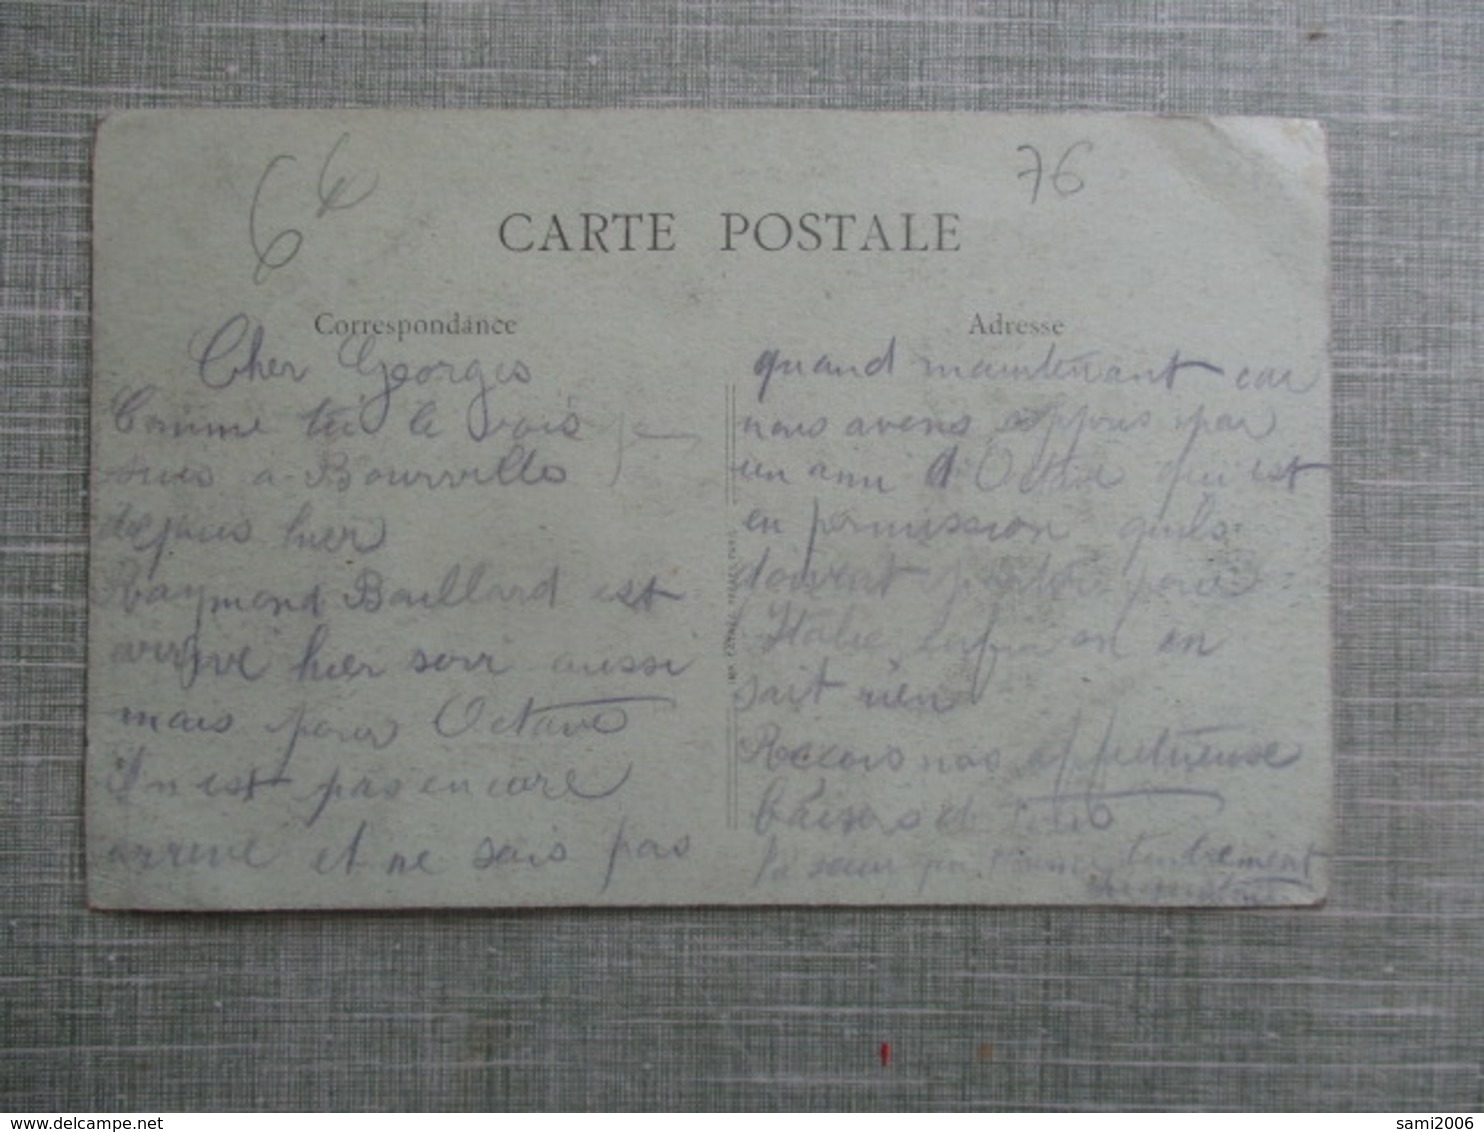 64
76
CARTE POSTALE
Correspondance
Cher Georges
Comme tu le vois je
suis a Bourville
depuis hier
Raymond Baillard est
arrive hier soir aussi
mais pour Octave
Il n'est pas encore
arrive et ne sais pas
Adresse
quand maintenant car
nous avons appris par
un ami d'Octave qui est
en permission quils
doivent partir pour
Italie enfin on en
sait rien
Recois nos affectueuse
baisers de tous
Ta sœur qui t'aime tendrement
sami2006